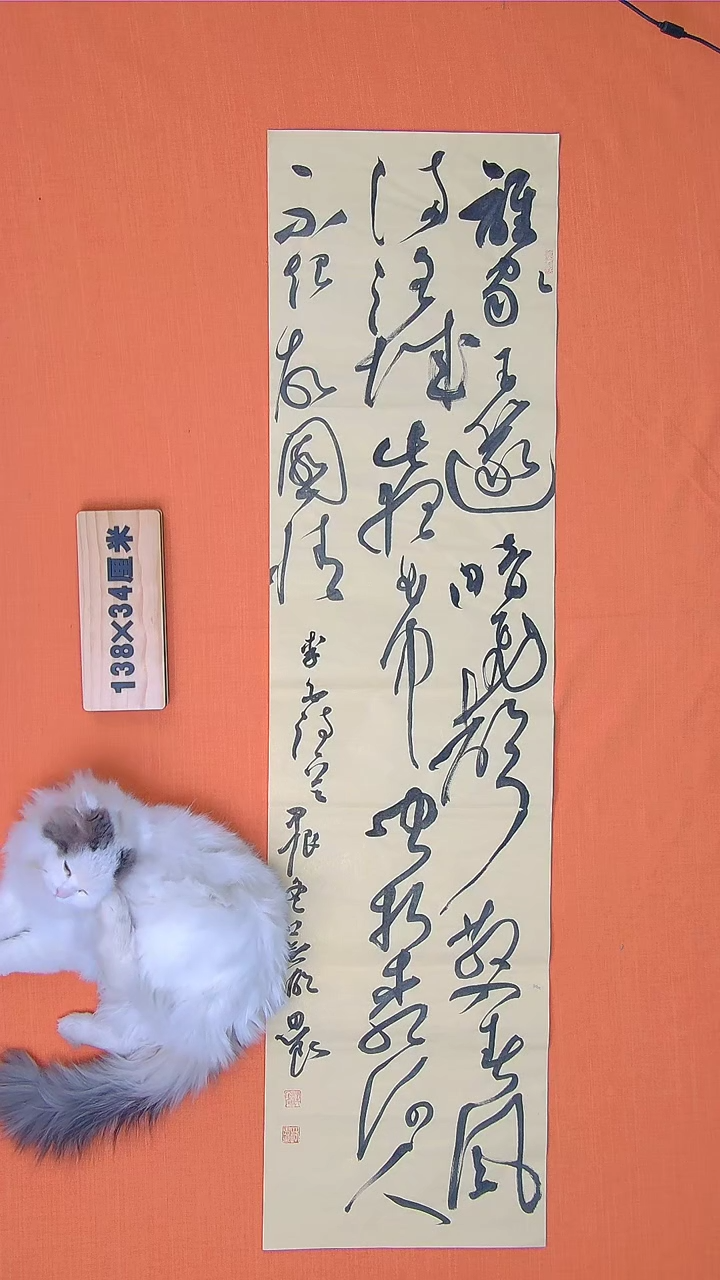 誰家玉篴暗飛聲散入春風
滿洛城此夜曲中聞折柳何人
不起故園情
李白詩
138×34厘米